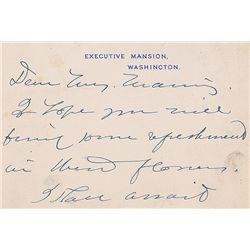 EXECUTIVE MANSION,
WASHINGTON.
Dear Mrs. Manning,
I hope you will
bring some refreshment
in these flowers.
I am